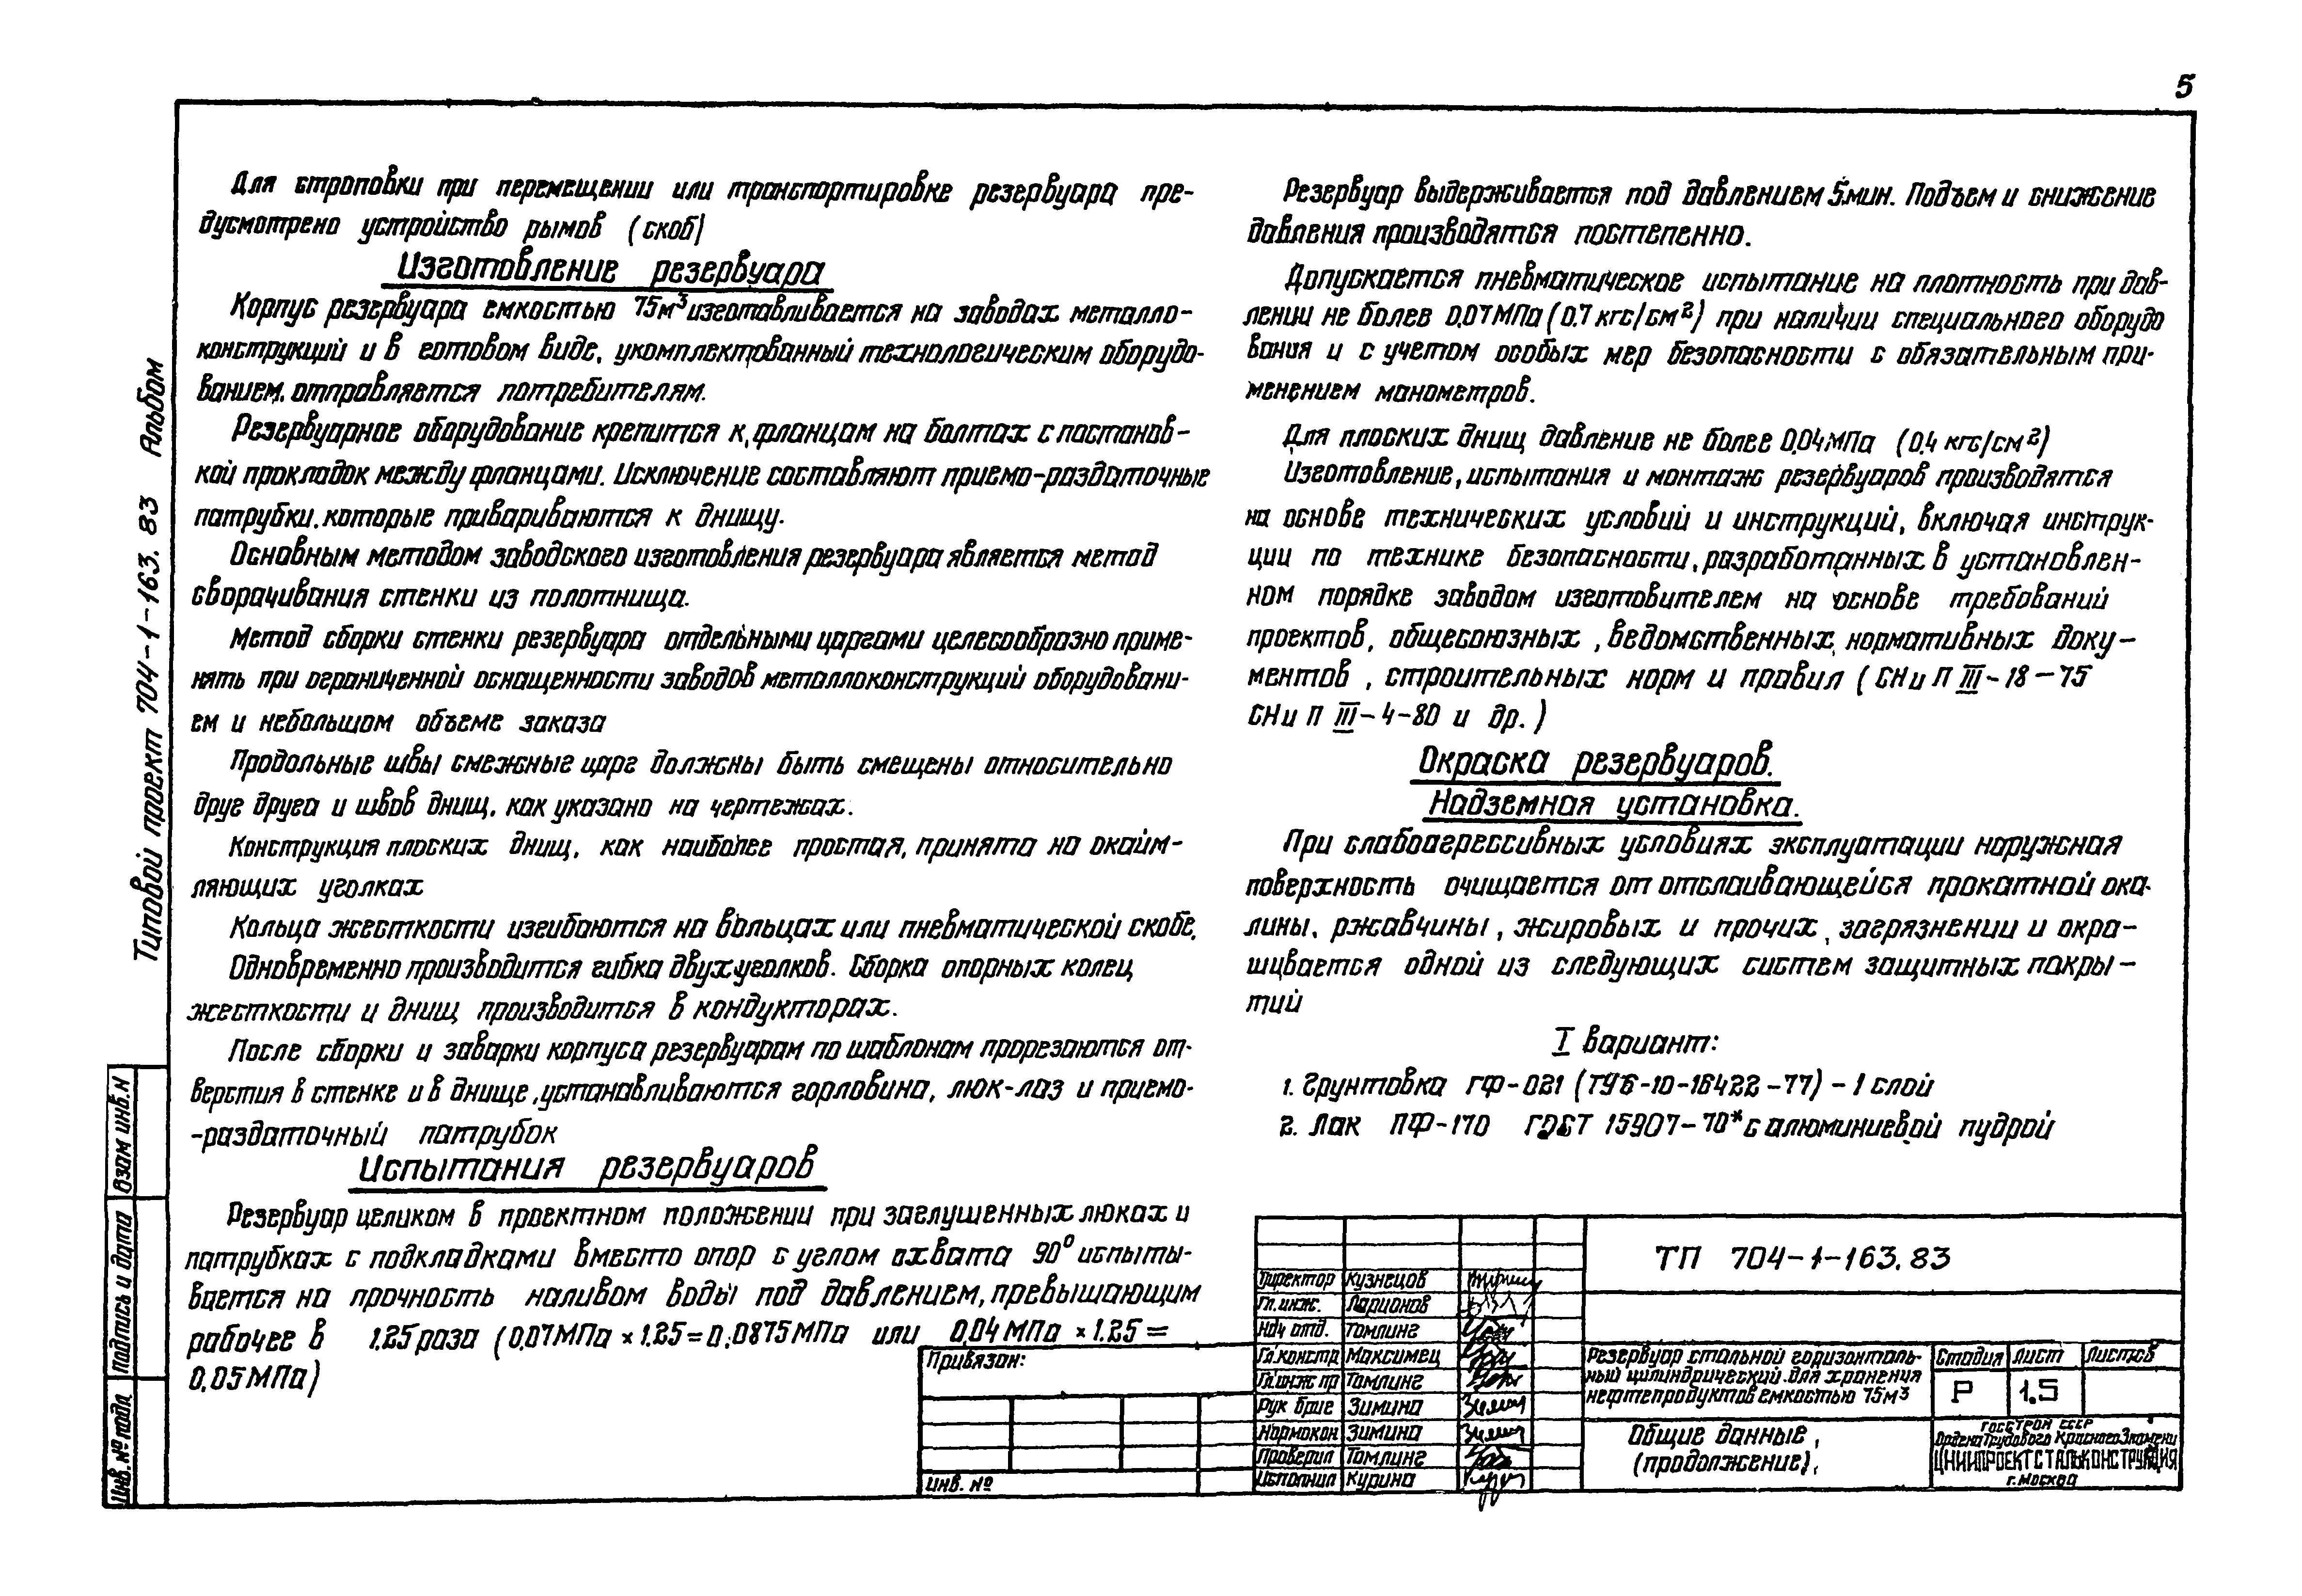 5
Для строповки при перемещении или транспортировке резервуара пре-
дусмотрено устройство рымов (скоб)
Изготовление резервуара
Корпус резервуара емкостью 75м³ изготавливается на заводах металло-
конструкций и в готовом виде, укомплектованный технологическим оборудо-
ванием, отправляется потребителям.
Резервуарное оборудование крепится к фланцам на болтах с постанов-
кой прокладок между фланцами. Исключение составляют приемо-раздаточные
патрубки, которые привариваются к днищу.
Основным методом заводского изготовления резервуара является метод
сворачивания стенки из полотнища.
Метод сборки стенки резервуара отдельными царгами целесообразно приме-
нять при ограниченной оснащенности заводов металлоконструкций оборудовани-
ем и небольшом объеме заказа
Продольные швы смежные царг должны быть смещены относительно
друг друга и швов днищ, как указано на чертежах.
Конструкция плоских днищ, как наиболее простая, принята на окайм-
ляющих уголках
Кольца жесткости изгибаются на вальцах или пневматической скобе.
Одновременно производится гибка двух уголков. Сборка опорных колец
жесткости и днищ производится в кондукторах.
После сборки и заварки корпуса резервуарам по шаблонам прорезаются от-
верстия в стенке и в днище, устанавливаются горловина, люк-лаз и приемо-
-раздаточный патрубок
Испытания резервуаров
Резервуар целиком в проектном положении при заглушенных люках и
патрубках с подкладками вместо опор с углом охвата 90° испыты-
вается на прочность наливом воды под давлением, превышающим
рабочее в 1.25 раза (0,07МПа × 1.25 = 0,0875МПа или 0,04 МПа × 1.25 =
0,05 МПа)
Резервуар выдерживается под давлением 5мин. Подъем и снижение
давления производятся постепенно.
Допускается пневматическое испытание на плотность при дав-
лении не более 0.07МПа (0.7 кгс/см²) при наличии специального оборудо
вания и с учетом особых мер безопасности с обязательным при-
менением манометров.
Для плоских днищ давление не более 0.04МПа (0.4 кгс/см²)
Изготовление, испытания и монтаж резервуаров производятся
на основе технических условий и инструкций, включая инструк-
ции по технике безопасности, разработанных в установлен-
ном порядке заводом изготовителем на основе требований
проектов, общесоюзных, ведомственных нормативных доку-
ментов, строительных норм и правил (СНиП III-18-75
СНиП III-4-80 и др.)
Окраска резервуаров.
Надземная установка.
При слабоагрессивных условиях эксплуатации наружная
поверхность очищается от отслаивающейся прокатной ока-
лины, ржавчины, жировых и прочих, загрязнении и окра-
шивается одной из следующих систем защитных покры-
тий
I вариант:
1. Грунтовка ГФ-021 (ТУ6-10-16422-77) - 1 слой
2. Лак ПФ-170 ГОСТ 15907-70* с алюминиевой пудрой
Типовой проект 704-1-163.83 Альбом
Взам инв. N
Подпись и дата
Инв. № подл
Привязан:
Инв. №
Директор Кузнецов
Гл. инж. Ларионов
Нач отд. Томлинг
Гл. констр Максимец
Гл. инж пр Томлинг
Рук бриг Зимина
Нормокон Зимина
Проверил Томлинг
Исполнил Курина
ТП 704-1-163.83
Резервуар стальной горизонталь-
ный цилиндрический для хранения
нефтепродуктов емкостью 75м³
Стадия Лист Листов
Р 1.5
Общие данные,
(продолжение).
Госстрой СССР
Ордена Трудового Красного Знамени
ЦНИИПРОЕКТСТАЛЬКОНСТРУКЦИЯ
г. Москва